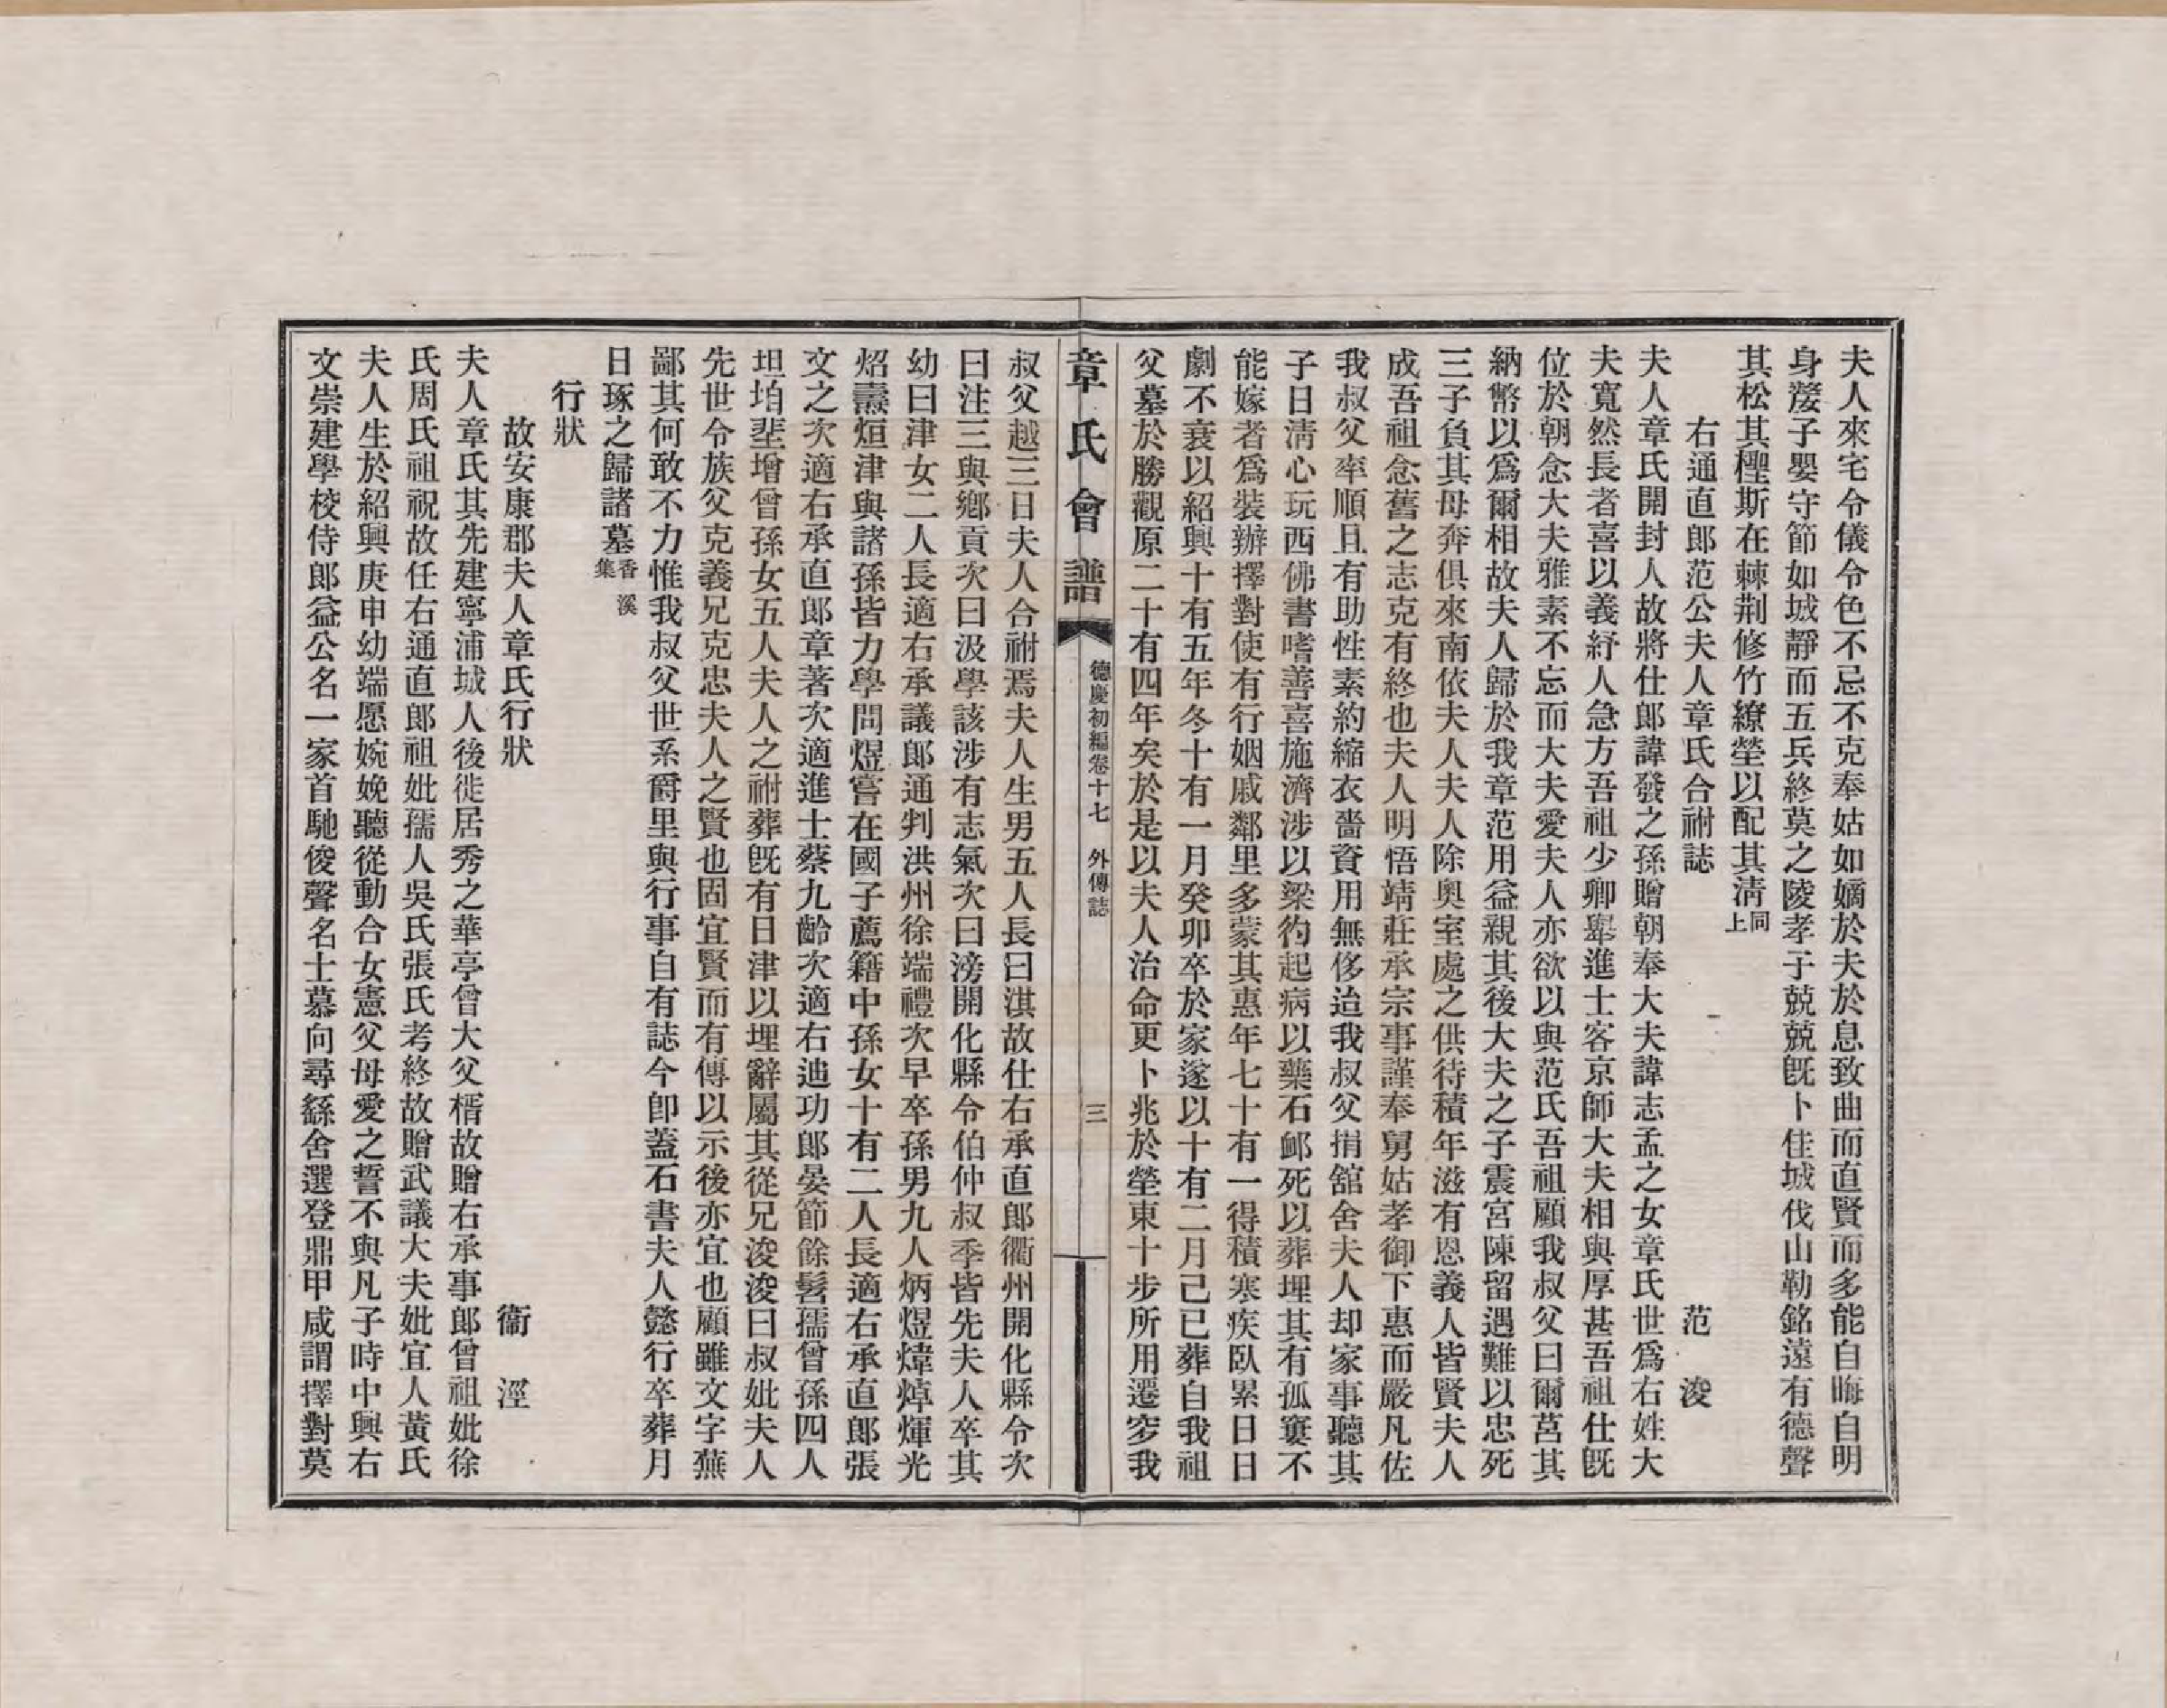 夫人來宅令儀令色不忌不克奉姑如嫡於夫於息致曲而直賢而多能自晦自明
身嫠子嬰守節如城靜而五兵終莫之陵孝子兢兢旣卜佳城伐山勒銘遠有德聲
其松其檉斯在棘荆修竹繚塋以配其淸同上
右通直郎范公夫人章氏合祔誌 范浚
夫人章氏開封人故將仕郎諱發之孫贈朝奉大夫諱志孟之女章氏世爲右姓大
夫寬然長者喜以義紓人急方吾祖少卿擧進士客京師大夫相與厚甚吾祖仕旣
位於朝念大夫雅素不忘而大夫愛夫人亦欲以與范氏吾祖顧我叔父曰爾莒其
納幣以爲爾相故夫人歸於我章范用益親其後大夫之子震宮陳留遇難以忠死
三子負其母奔俱來南依夫人夫人除奧室處之供待積年滋有恩義人皆賢夫人
成吾祖念舊之志克有終也夫人明悟靖莊承宗事謹奉舅姑孝御下惠而嚴凡佐
我叔父率順且有助性素約縮衣嗇資用無侈迨我叔父捐舘舍夫人却家事聽其
子日淸心玩西佛書嗜善喜施濟涉以梁彴起病以藥石䘏死以葬埋其有孤寠不
能嫁者爲裝辦擇對使有行姻戚鄰里多蒙其惠年七十有一得積寒疾臥累日日
劇不衰以紹興十有五年冬十有一月癸卯卒於家遂以十有二月己巳葬自我祖
父墓於勝觀原二十有四年矣於是以夫人治命更卜兆於塋東十步所用遷窆我
章氏會譜 德慶初編卷十七 外傳誌 三
叔父越三日夫人合祔焉夫人生男五人長曰淇故仕右承直郎衢州開化縣令次
曰注三與鄉貢次曰汲學該涉有志氣次曰滂開化縣令伯仲叔季皆先夫人卒其
幼曰津女二人長適右承議郎通判洪州徐端禮次早卒孫男九人炳煜煒焯煇光
炤燾烜津與諸孫皆力學問煜嘗在國子薦籍中孫女十有二人長適右承直郎張
文之次適右承直郎章著次適進士蔡九齡次適右迪功郎晏節餘髫孺曾孫四人
坦垍墾增曾孫女五人夫人之祔葬旣有日津以埋辭屬其從兄浚浚曰叔妣夫人
先世令族父克義兄克忠夫人之賢也固宜賢而有傳以示後亦宜也顧雖文字蕪
鄙其何敢不力惟我叔父世系爵里與行事自有誌今卽蓋石書夫人懿行卒葬月
日琢之歸諸墓香溪集
行狀
故安康郡夫人章氏行狀 衞涇
夫人章氏其先建寧浦城人後徙居秀之華亭曾大父楈故贈右承事郎曾祖妣徐
氏周氏祖祝故任右通直郎祖妣孺人吳氏張氏考終故贈武議大夫妣宜人黃氏
夫人生於紹興庚申幼端愿婉娩聽從動合女憲父母愛之誓不與凡子時中興右
文崇建學校侍郎益公名一家首馳俊聲名士慕向尋繇舍選登鼎甲咸謂擇對莫